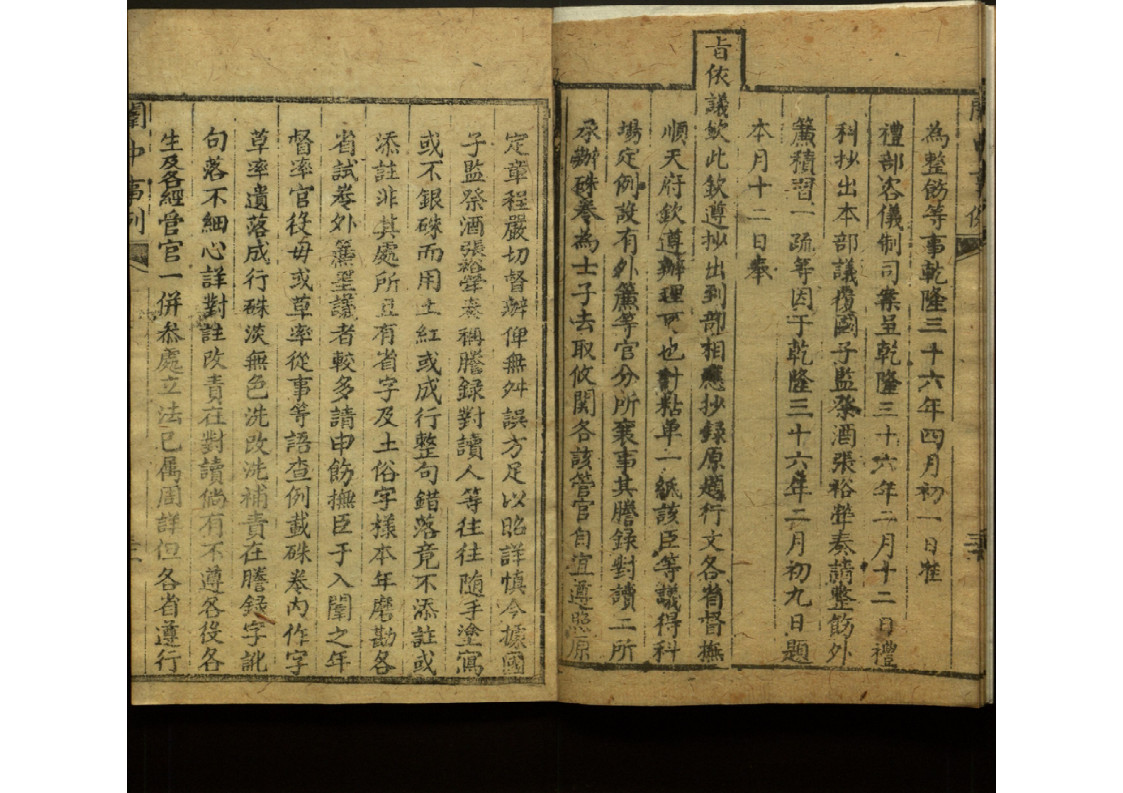 為整飭等事乾隆三十六年四月初一日准
禮部咨儀制司案呈乾隆三十六年二月十二日禮
科抄出本部議覆國子監祭酒張裕犖奏請整飭外
簾積習一疏等因于乾隆三十六年二月初九日題
本月十二日奉
旨依議欽此欽遵抄出到部相應抄錄原題行文各省督撫
順天府欽遵辦理可也計粘单一紙該臣等議得科
場定例設有外簾等官分所襄事其謄録對讀二所
承辦硃卷為士子去取攸関各該管官自宜遵照原
定章程嚴切督辦俾無舛誤方足以昭詳慎今據國
子監祭酒張裕犖奏稱謄録對讀人等往往随手塗寫
或不銀硃而用土紅或成行整句錯落竟不添註或
添註非其處所且有省字及土俗字樣本年磨勘各
省試卷外簾罣議者較多請申飭撫臣于入闈之年
督率官役毋或草率從事等語查例載硃卷内作字
草率遺落成行硃淡無色洗改洗補責在謄録字訛
句落不細心詳對註改責在對讀倘有不遵各役各
生及各經管官一併叅處立法已属周詳但各省遵行
闈中事例